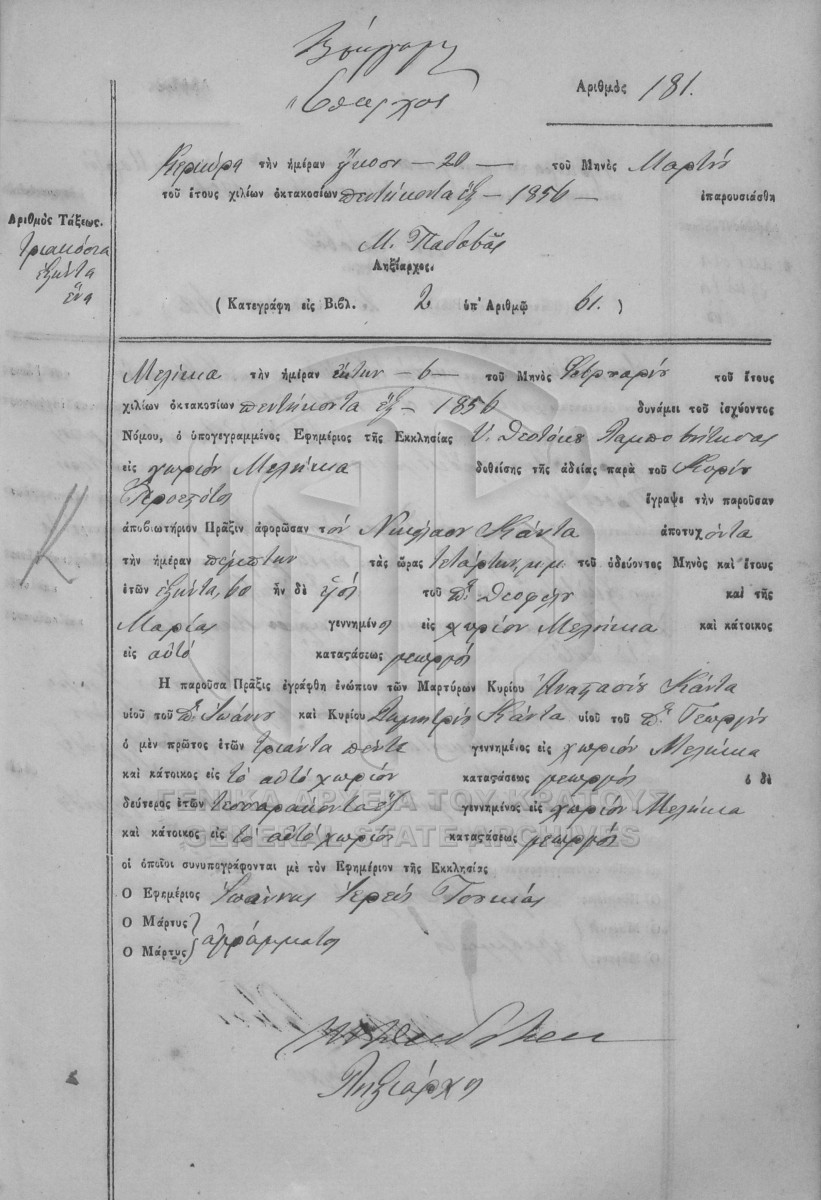 Ἔπαρχος
Ἀριθμὸς 181.
Κερκύρα τὴν ἡμέραν ἤκοσι — 20 — τοῦ Μηνὸς Μαρτίȣ
τοῦ ἔτους χιλίων ὀκτακοσίων πεντήκοντα ἕξ — 1856 — ἐπαρουσιάσθη
Ἀριθμὸς Τάξεως.
τριακόσια
ἑξῆντα
ἕνα
Μ. Παδοβᾶς
Ληξίαρχος.
( Κατεγράφη εἰς Βιβλ. 2 ὑπ' Ἀριθμῷ 61. )
Μελίκια τὴν ἡμέραν ἕκτην — 6 — τοῦ Μηνὸς Φεβρουαρίȣ τοῦ ἔτους
χιλίων ὀκτακοσίων πεντήκοντα ἕξ — 1856 δυνάμει τοῦ ἰσχύοντος
Νόμου, ὁ ὑπογεγραμμένος Ἐφημέριος τῆς Ἐκκλησίας Υ. Θεοτόκȣ
εἰς χωρίον Μελίκια δοθείσης τῆς ἀδείας παρὰ τοῦ Κυρίȣ
Προεστῶτος ἔγραψε τὴν παροῦσαν
ἀποβιωτήριον Πρᾶξιν ἀφορῶσαν τόν Νικόλαον Κάντα ἀποτυχόντα
τὴν ἡμέραν πέμπτην τὰς ὥρας τετάρτην μ.μ. τοῦ ὁδεύοντος Μηνὸς καὶ ἔτους
ἐτῶν ἑξῆντα, 60 ἦν δὲ ὑιός τοῦ π͞ Θεοφίλȣ καὶ τῆς
Μαρίας γεννημένος εἰς χωρίον Μελίκια καὶ κάτοικος
εἰς αὐτό καταςάσεως γεωργός
Κ
Ἡ παροῦσα Πρᾶξις ἐγράφθη ἐνώπιον τῶν Μαρτύρων Κυρίου Ἀναστασίȣ Κάντα
υἱοῦ τοῦ π͞ Ἰωάνȣ καὶ Κυρίου Δημητρίȣ Κάντα υἱοῦ τοῦ π͞ Γεωργίȣ
ὁ μὲν πρῶτος ἐτῶν τριάντα πέντε γεννημένος εἰς χωρίον Μελίκια
καὶ κάτοικος εἰς τὸ αὐτό χωρίον καταςάσεως γεωργός ὁ δὲ
δεύτερος ἐτῶν τεσσαράκοντα ἕξ γεννημένος εἰς χωρίον Μελίκια
καὶ κάτοικος εἰς τὸ αὐτό χωρίον καταςάσεως γεωργός
οἱ ὁποῖοι συνυπογράφονται μὲ τὸν Ἐφημέριον τῆς Ἐκκλησίας
Ὁ Ἐφημέριος Ἰωάννης Ἱερεύς
Ὁ Μάρτυς
Ὁ Μάρτυς ἀγράμματοι
Ληξιάρχος
ΓΕΝΙΚΑ ΑΡΧΕΙΑ ΤΟΥ ΚΡΑΤΟΥΣ
GENERAL STATE ARCHIVES